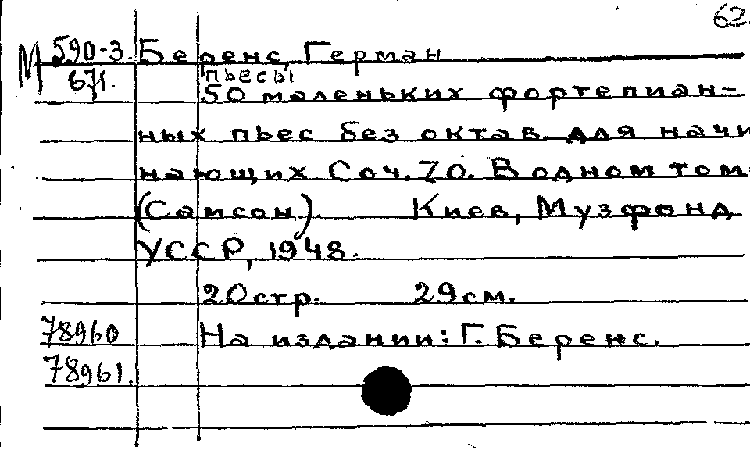 62
М 590-3. Беренс, Герман
671. пьесы
50 маленьких фортепиан-
ных пьес без октав для начи
нающих Соч. 70. В одном том
(Самсон) Киев, Музфонд
УССР, 1948.
20 стр. 29 см.
78960 На издании: Г. Беренс.
78961.